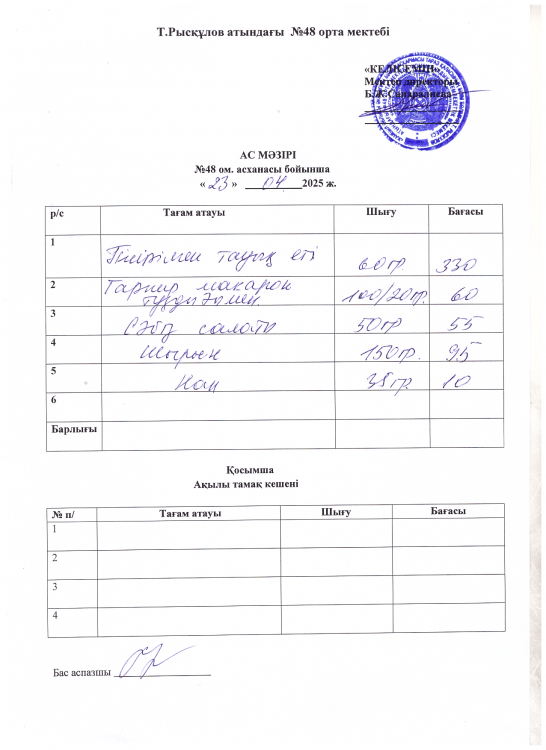 Т.Рысқұлов атындағы №48 орта мектебі
«КЕЛІСЕМІН»
Мектеп директоры
АС МӘЗІРІ
№48 ом. асханасы бойынша
« 23 » 04. 2025 ж.
р/с Тағам атауы Шығу Бағасы
1 тауық еті 60гр. 330
2 Гарнир макарон 100/20гр. 60
тұздығымен
3 Сәбіз салаты 50гр 55
4 Шырын 150гр. 95
5 Нан 38гр. 10
6
Барлығы
Қосымша
Ақылы тамақ кешені
№ п/ Тағам атауы Шығу Бағасы
1
2
3
4
Бас аспазшы